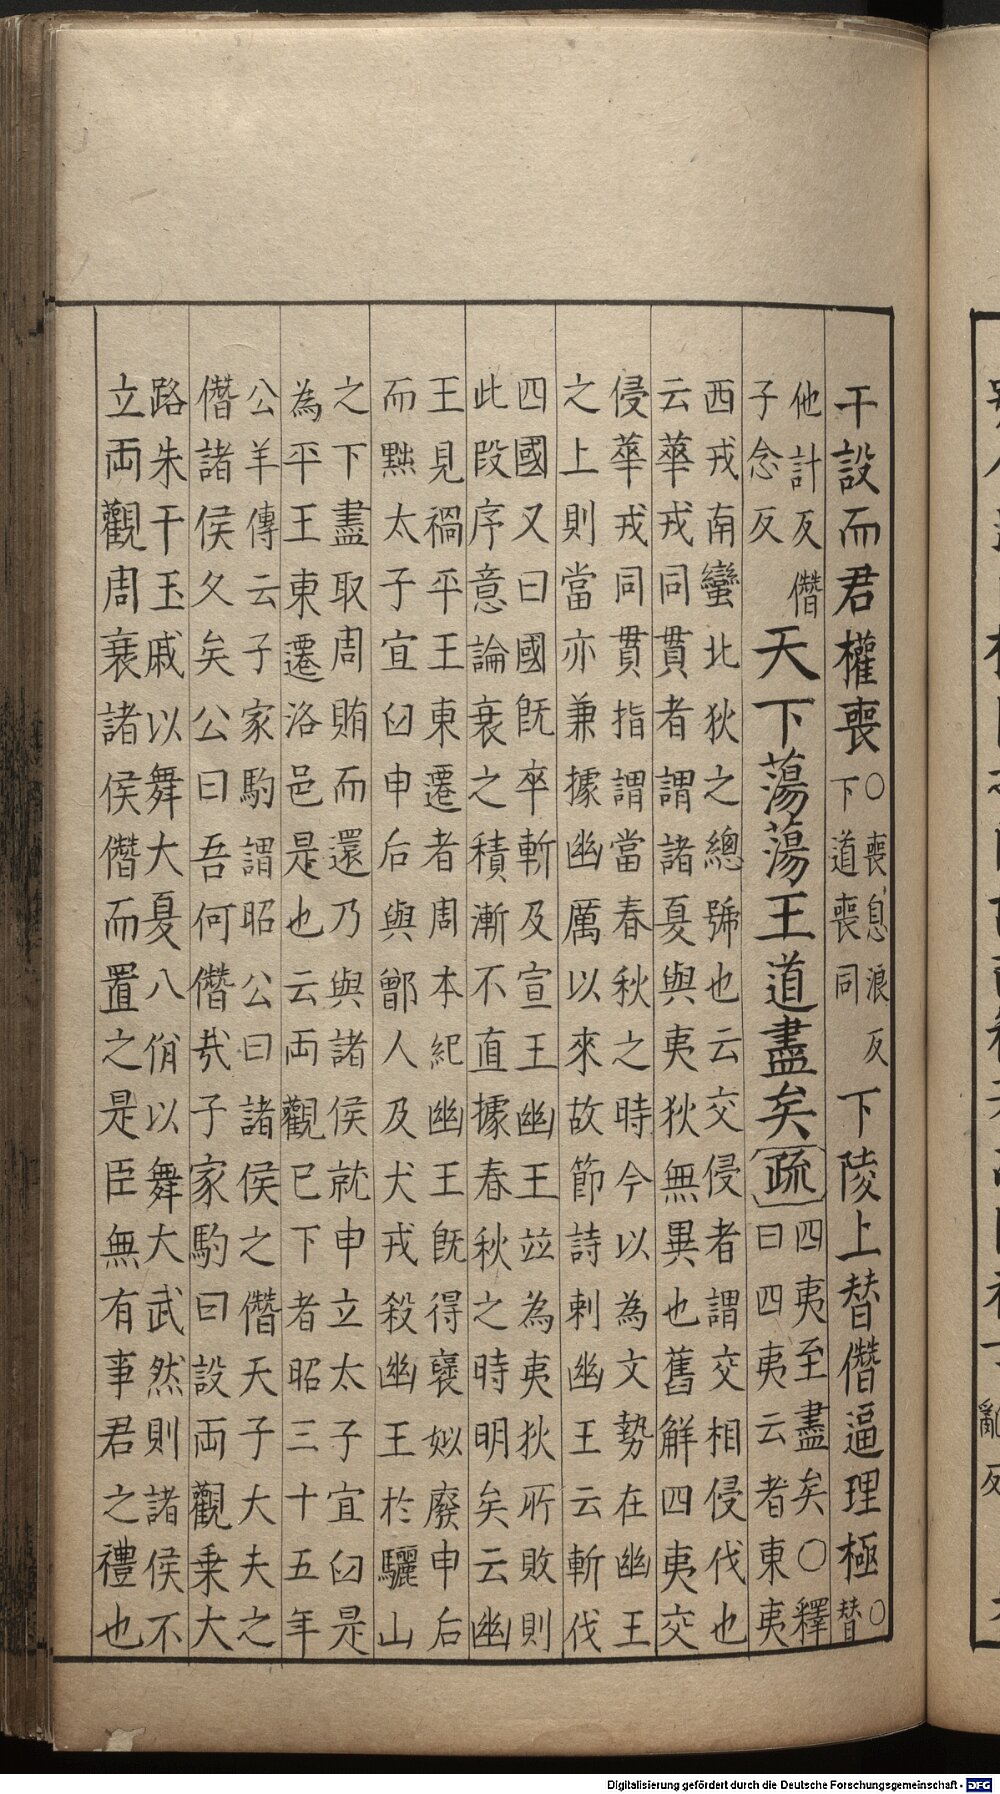 干設而君權喪○喪息浪反下道喪同下陵上替僭逼理極○替
他計反僭子念反天下蕩蕩王道盡矣疏四夷至盡矣○釋曰四夷云者東夷
西戎南蠻北狄之總號也云交侵者謂交相侵伐也
云華戎同貫者謂諸夏與夷狄無異也舊解四夷交
侵華戎同貫指謂當春秋之時今以為文勢在幽王
之上則當亦兼據幽厲以來故節詩刺幽王云斬伐
四國又曰國既卒斬及宣王幽王並為夷狄所敗則
此段序意論衰之積漸不直據春秋之時明矣云幽
王見禍平王東遷者周本紀幽王既得褒姒廢申后
而黜太子宜臼申后與鄫人及犬戎殺幽王於驪山
之下盡取周賂而還乃與諸侯就申立太子宜臼是
為平王東遷洛邑是也云両觀已下者昭三十五年
公羊傳云子家駒謂昭公曰諸侯之僭天子大夫之
僭諸侯久矣公曰吾何僭哉子家駒曰設両觀乘大
路朱干玉戚以舞大夏八佾以舞大武然則諸侯不
立両觀周衰諸侯僭而置之是臣無有事君之禮也
Digitalisierung gefördert durch die Deutsche Forschungsgemeinschaft - DFG